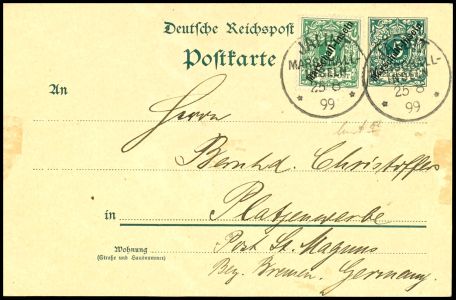 Deutsche Reichspost
Postkarte
JALUIT
MARSHALL-
INSELN
25 8
99
Marschall-Inseln
JALUIT
MARSHALL-
INSELN
25 8
99
Marschall-Inseln
An
Herrn
Bernhd. Christoffers
in Platjenwerbe
Post St. Magnus
Bez. Bremen. Germany.
Wohnung
(Straße und Hausnummer)